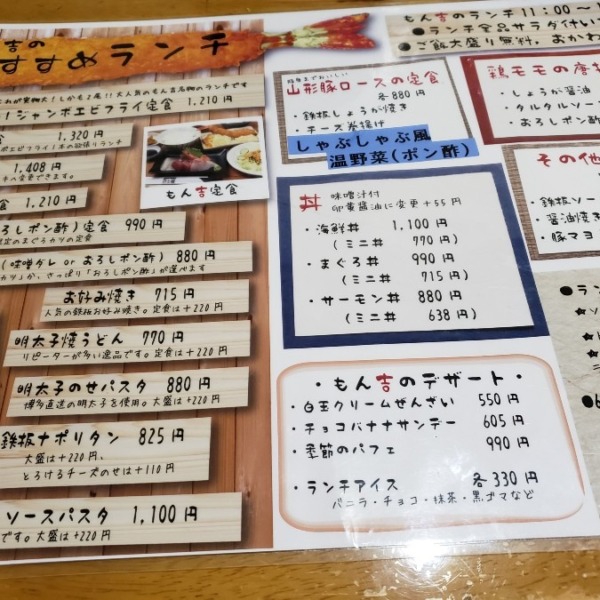 吉の
すすめランチ
!ジャンボエビフライ定食 1,210円
1,320円
1,408円
1,210円
ろしポン酢)定食 990円
(味噌ダレ or おろしポン酢) 880円
お好み焼き 715円
人気の鉄板お好み焼き。定食は+220円
明太子焼うどん 770円
リピーターが多い逸品です。定食は+220円
明太子のせパスタ 880円
博多直送の明太子を使用。大盛は+220円
鉄板ナポリタン 825円
大盛は+220円、
とろけるチーズのせは+110円
ソースパスタ 1,100円
です。大盛は+220円
もん吉定食
もん吉のランチ11:00~
●ランチ全品サラダ付い
●ご飯大盛り無料。おかわ
山形豚ロースの定食
各880円
・鉄板しょうが焼き
・チーズ
しゃぶしゃぶ風
温野菜(ポン酢)
鶏モモの唐
・しょうが醤油
・タルタルソー
・おろしポン酢
その他
・鉄板ソー
・醤油焼き
・豚マヨ
丼 味噌汁付
卵黄醤油に変更+55円
・海鮮丼 1,100円
(ミニ丼 770円)
・まぐろ丼 990円
(ミニ丼 715円)
・サーモン丼 880円
(ミニ丼 638円)
・もん吉のデザート・
・白玉クリームぜんざい 550円
・チョコバナナサンデー 605円
・季節のパフェ 990円
・ランチアイス 各330円
バニラ・チョコ・抹茶・黒ゴマなど
●ラン